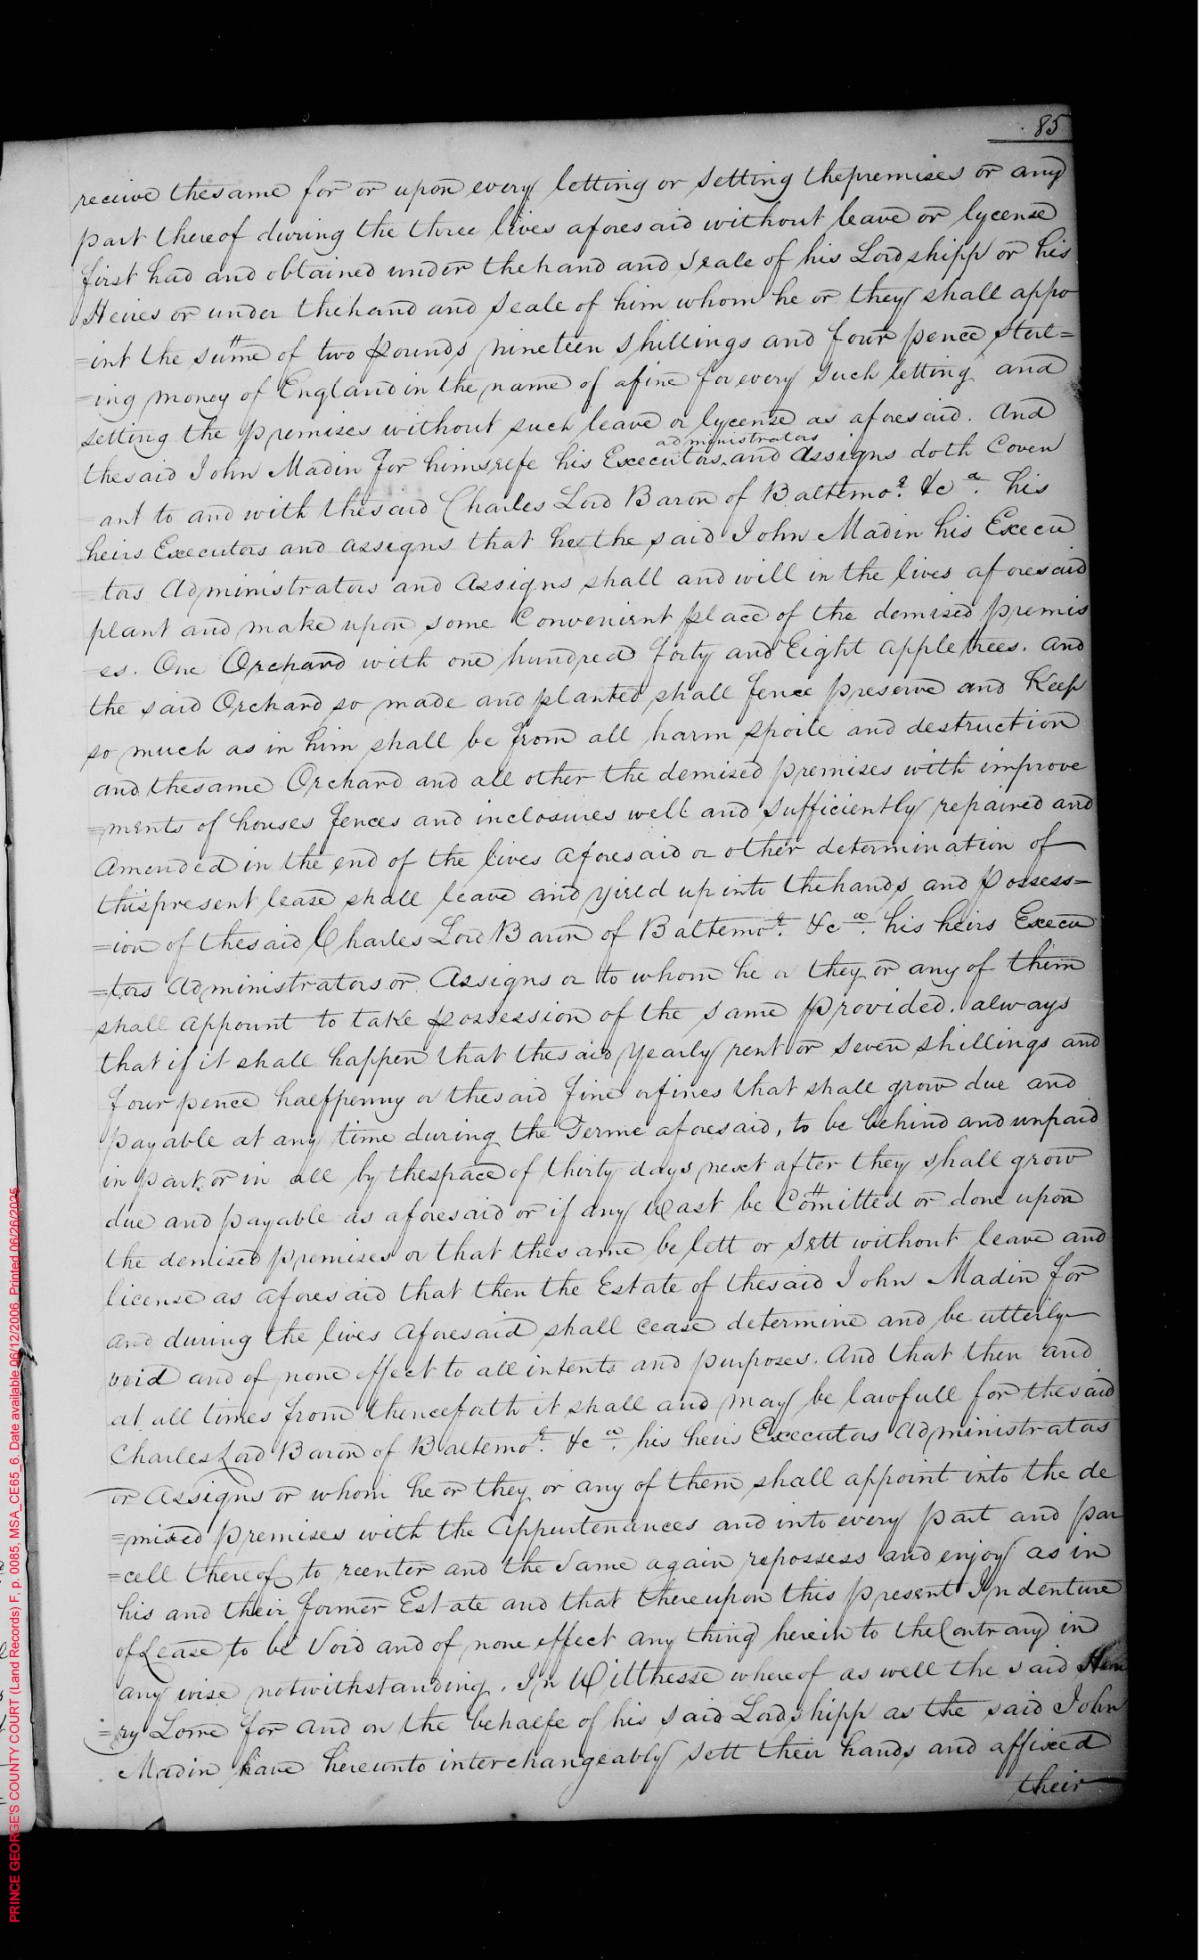 85
receive thesame for or upon every letting or setting thepremises or any
part thereof during the three lives aforesaid without leave or lycense
first had and obtained under thehand and seale of his Lordshipp or his
Heires or under thehand and seale of him whom he or they shall appo
=int the sum̃e of two pounds nineteen shillings and four pence sterl=
=ing money of England in the name of afine for every such letting and
setting the premises without such leave or lycense as aforesaid. And
administrators
thesaid John Madin for himselfe his Executors and Assigns doth Coven
ant to and with thesaid Charles Lord Baron of Baltemo.e &c.a his
heirs Executors and assigns that hee the said John Madin his Execu
tors Administrators and Assigns shall and will in the lives aforesaid
plant and make upon some Convenient place of the demised premis
=es. One Orchard with one hundred forty and Eight apple trees. and
the said Orchard so made and planted shall fence preserve and Keep
so much as in him shall be from all harm spoile and destruction
and thesame Orchard and all other the demised premises with improve
=ments of houses fences and inclosures well and sufficiently repaired and
Amended in the end of the lives Aforesaid or other determination of
thispresent lease shall leave and yield up into thehands and possess=
=ion of thesaid Charles Lord Baron of Baltemo.e &c.a his heirs Execu
=tors Administrators or Assigns or to whom he or they or any of them
shall appount to take possession of the same provided. always
that if it shall happen that thesaid yearly rent or seven shillings and
four pence halfpenny or thesaid fine orfines that shall grow due and
payable at any time during the Terme aforesaid, to be behind and unpaid
in part or in all by thespace of thirty days next after they shall grow
due and payable as aforesaid or if any Wast be Com̃itted or done upon
the demised premises or that thesame be lett or sett without leave and
license as aforesaid that then the Estate of thesaid John Madin for
and during the lives Aforesaid shall cease determine and be utterly
void and of none effect to all intents and purposes. And that then and
at all times from thenceforth it shall and may be lawfull for thesaid
Charles Lord Baron of Baltemo.e &c.a his heirs Executors Administrators
or Assigns or whom he or they or any of them shall appoint into the de
=mised premises with the Appurtenances and into every part and par
=cell thereof to reenter and the same again repossess and enjoy as in
his and their former Estate and that thereupon this present Indenture
of Lease to be Void and of none effect any thing herein to the Contrary in
any wise notwithstanding. In Wittnesse whereof as well the said Hen
=ry Lowe for and on the behalfe of his said Lordshipp as the said John
Madin have hereunto interchangeably sett their hands and affixed
their
PRINCE GEORGE'S COUNTY COURT (Land Records) F, p. 0085, MSA_CE65_6. Date available 06/12/2006. Printed 06/26/2025.